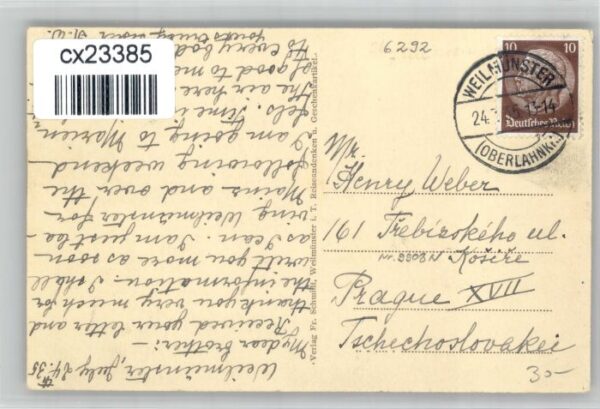 cx23385
6292
Weilmünster, July 24. 35
My dear brother:—
Received your letter and
thank you very much for
the information. I shall
write you more as soon
as I can. I am just lea-
ving Weilmünster for
Mainz and over the
following weekend
I am going to Marien-
fels. Time is
The air here
is good to me
to every bod
Yours truly
-Verlag Fr. Schmidt, Weilmünster i. T. Reiseandenken u. Geschenkartikel.
10 10
Deutsches Reich
WEILMÜNSTER
24. 13-14
(OBERLAHNKR.)
Mr.
Henry Weber
161 Třebízského ul.
Nr. 9908 N Košíře
Prague XVII
Tschechoslovakei
30-